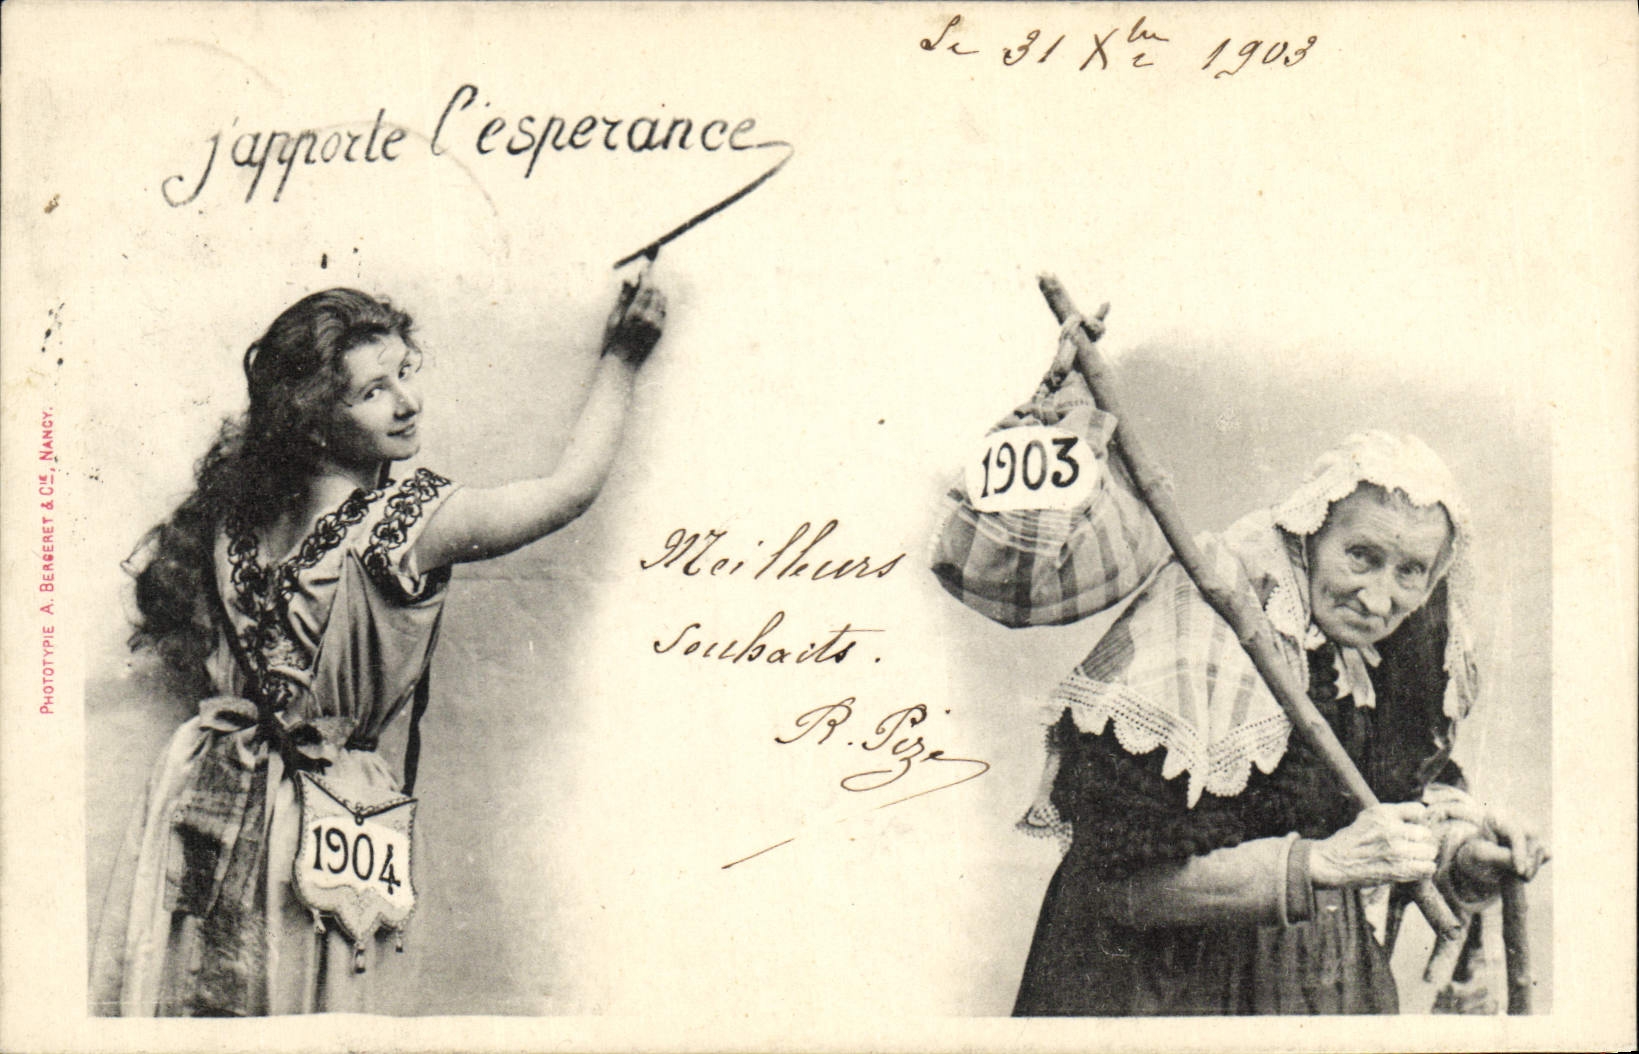 Le 31 Xbre 1903
j'apporte l'espérance
1903
Meilleurs
souhaits.
R. Pize
1904
PHOTOTYPIE A. BERGERET & CIE, NANCY.